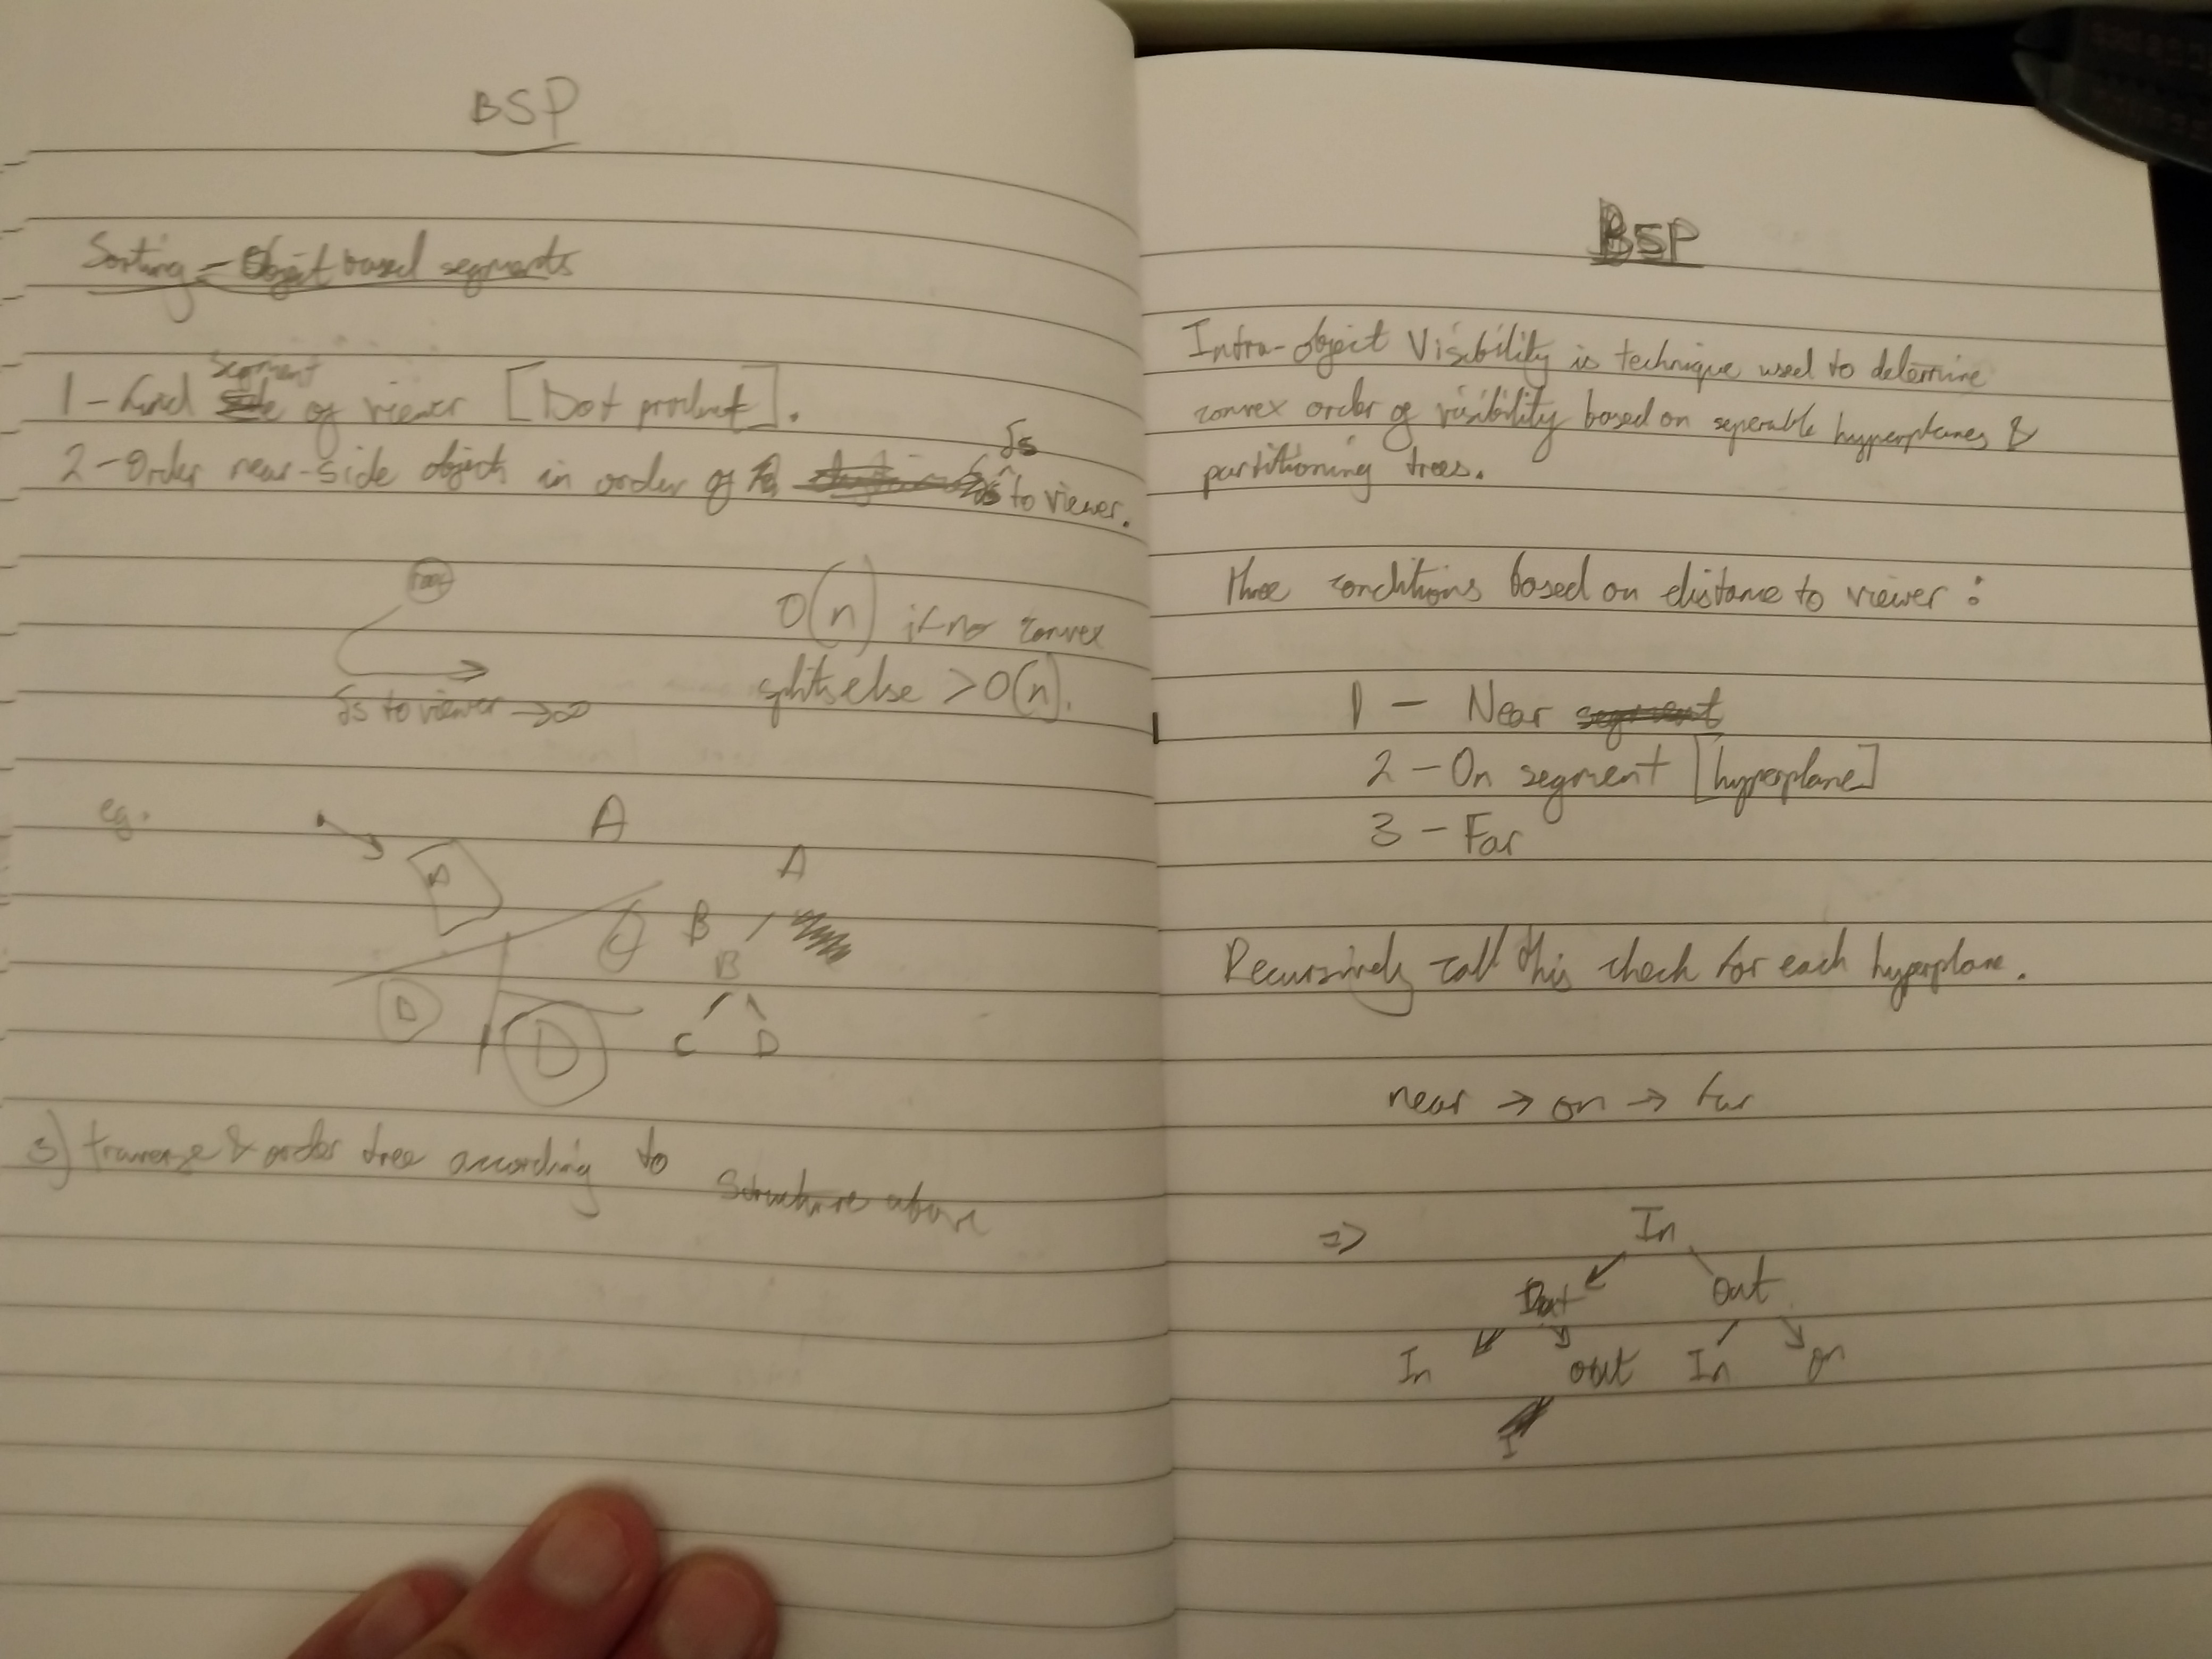 BSP
Sorting - Object based segments
segment
1 - Find of viewer [Dot product].
δs
2 - Order near-side objects in order of to viewer.
root
O(n) if no convex
splits else > O(n).
δs to viewer → ∞
eg.
A
A
A
B
C
B
D
D
C D
3) traverse & order tree according to
structure above
BSP
Intra-object Visibility is technique used to determine
convex order of visibility based on seperable hyperplanes &
partitioning trees.
three conditions based on distance to viewer :
1 - Near segment
2 - On segment [hyperplane]
3 - Far
Recursively call this check for each hyperplane.
near → on → far
⇒ In
Out Out
In out In on
I